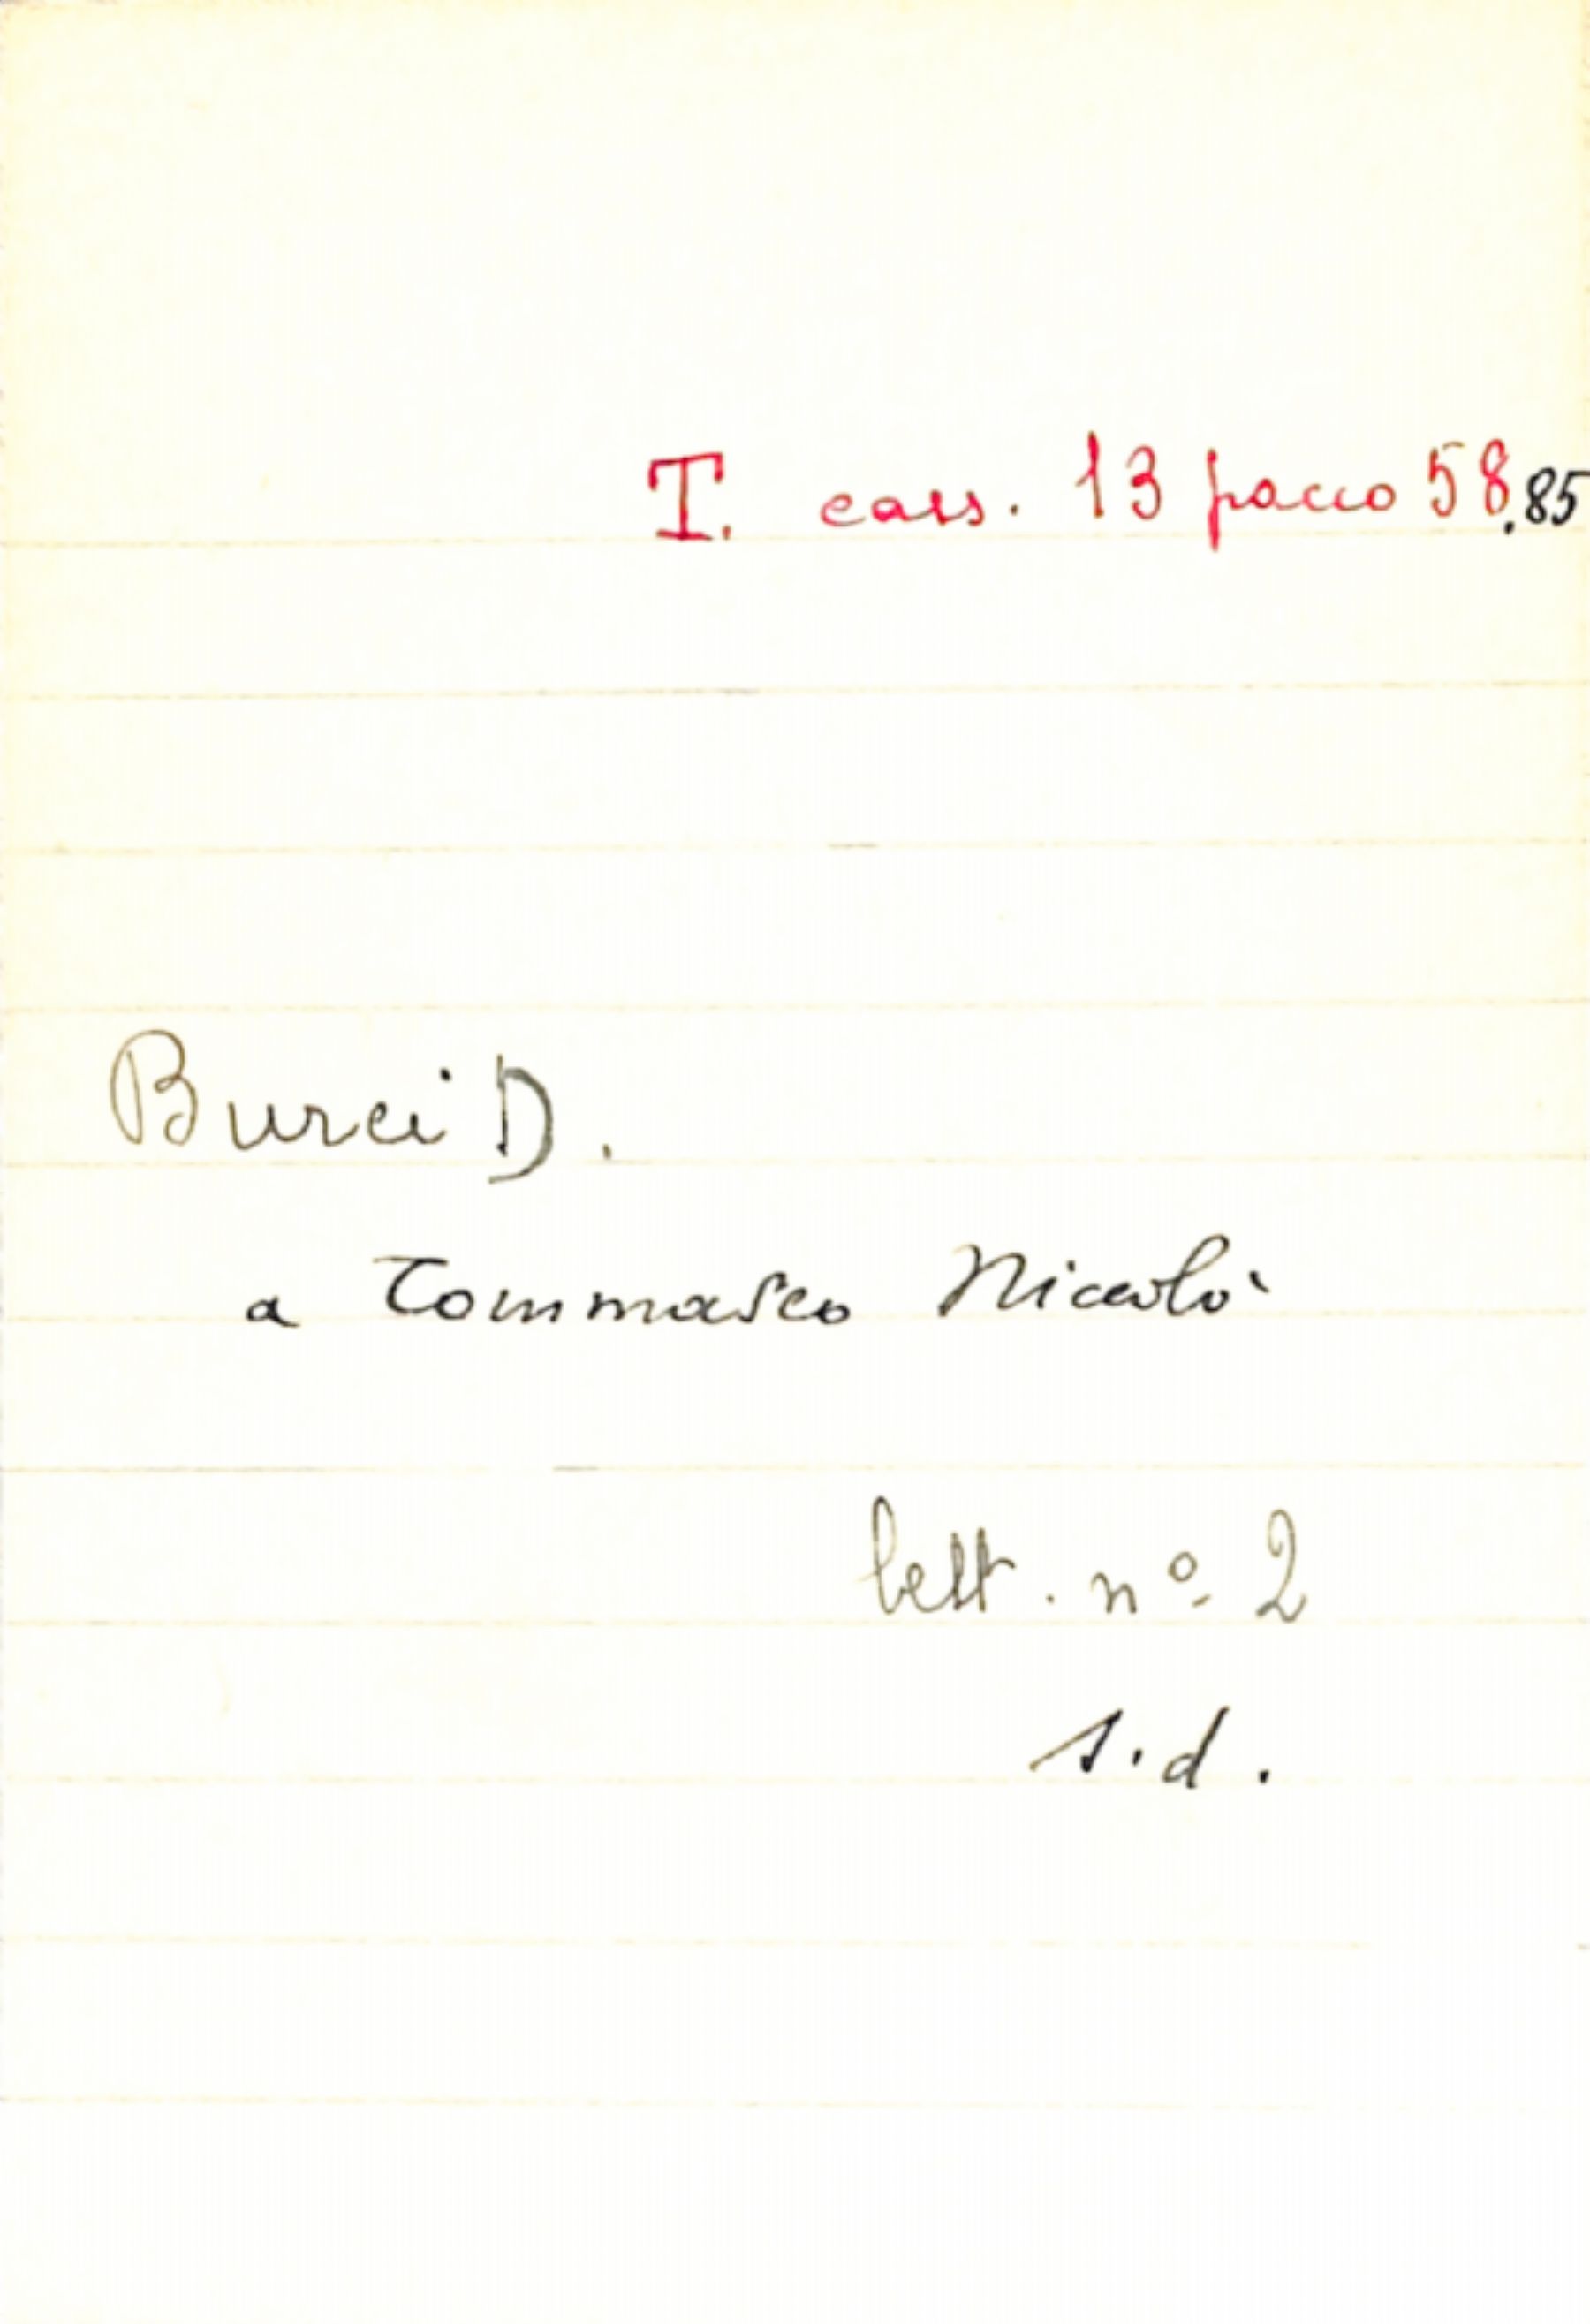 T. cass. 13 pacco 58.85
Burci D.
a Tommaseo Niccolò
lett. nº 2
s.d.